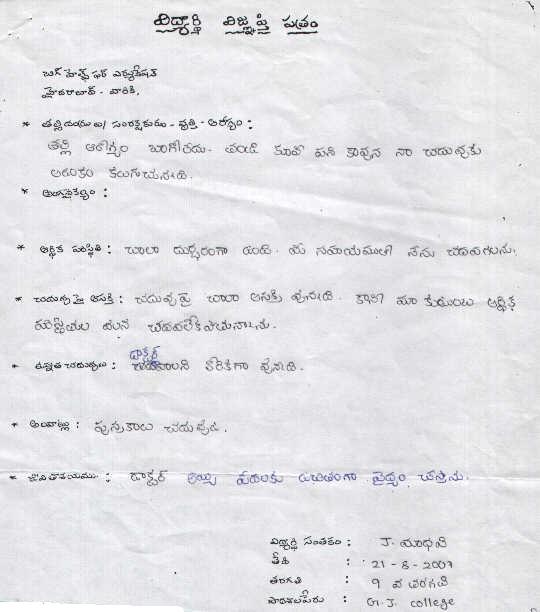 విద్యార్థి విజ్ఞప్తి పత్రం
బిగ్ హెల్ప్ ఫర్ ఎడ్యుకేషన్
హైదరాబాద్ - వారికి,
* తల్లిదండ్రులు/ సంరక్షకులు - వృత్తి - ఆరోగ్యం :
తల్లి ఆరోగ్యం బాగోలేదు. తండ్రి కూలి పని కావున నా చదువుకు
ఆటంకం కలుగుచున్నది.
* అంగవైకల్యం :
* ఆర్థిక పరిస్థితి : చాలా దుర్భరంగా ఉంది. మీ సహాయముతో నేను చదవగలను.
* చదువుపై ఆసక్తి : చదువుపై చాలా ఆసక్తి వున్నది. కానీ మా కుటుంబ ఆర్థిక
చదవలేకపోతున్నాను.
* ఉన్నత చదువులు : డాక్టర్ చదవాలని కోరికగా వున్నది.
* అలవాట్లు : పుస్తకాలు చదువుట.
* జీవితాశయము : డాక్టర్ అయ్యి పేదలకు ఉచితంగా వైద్యం చేస్తాను.
విద్యార్థి సంతకం : J. మాధవి
తేది : 21 - 8 - 2007
తరగతి : 9 వ తరగతి
పాఠశాలపేరు : G.J. college